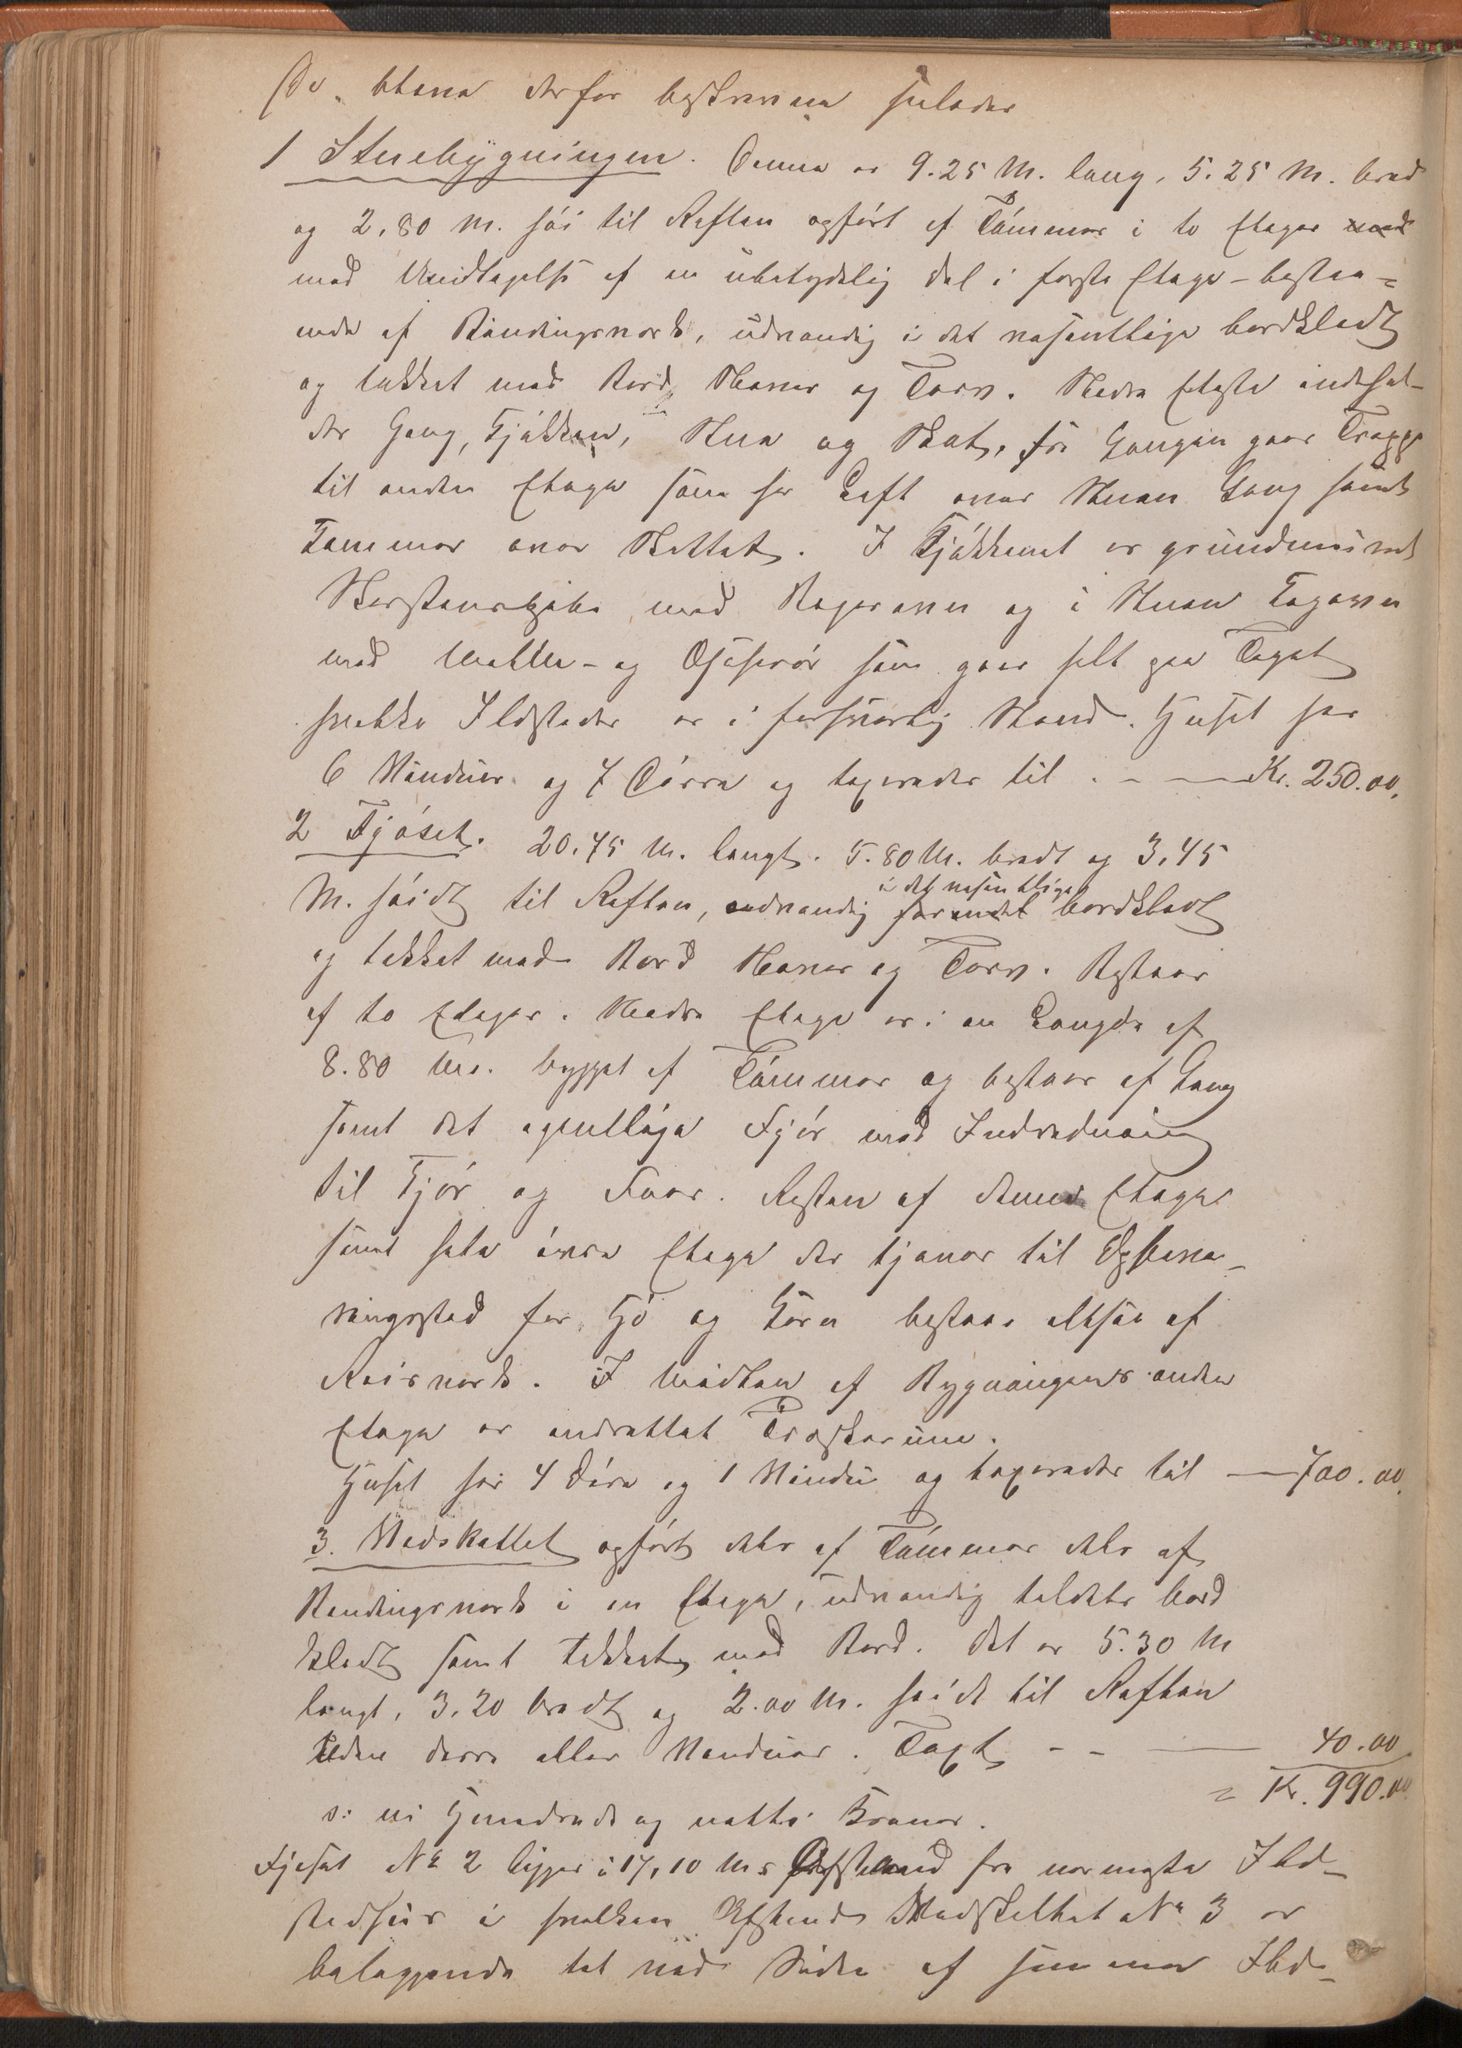 De blev derfor beskrevne saaledes
1 Stuebygningen. Denne er 9.25 M. lang, 5.25 M. bred
og 2,80 M. høi til Raften opført af Tømmer i to Etager med
med Undtagelse af en ubetydelig Del i første Etage – bestaa-
ende af Bindingsverk, udvendig i det væsentlige bordklædt
og tækket med Bord, Næver og Torv. Nedre Etage indehol-
der Gang, Kjøkken, Stue og Skot, fra Gangen gaar Trappe
til anden Etage som har Loft over Stuen Gang samt
Kammer over Skottet. I Kjøkkenet er grundmuret
Skorstenspibe med Bagerovn og i Stuen Kogeovn
med Mellem- og Ovnsrør som gaar helt paa Taget
hvilke Ildsteder er i forsvarlig Stand. Huset har
6 Vinduer og 7 Dørre og taxeredes til . – — Kr. 250.00.
2 Fjøset. 20.75 M. langt. 5.80 M. bredt og 3,45
M. høidt til Raften, udvendig i det væsentlige bordklædt
og tækket med Bord Næver og Torv. Bestaar
af to Etager. Nedre Etage er i en Længde af
8.80 M. bygget af Tømmer og bestaar af Gang
samt det egentlige Fjøs med Indredning
til Kjør og Faar. Resten af denne Etage
samt hele øvre Etage der tjener til Opbeva-
ringssted for Hø og Korn bestaar altsaa af
Reisverk. I Midten af Bygningens anden
Etage er indrettet Træskerum.
Huset har 4 Døre og 1 Vindu og taxeredes til — 700.00.
3. Vedskottet opført dels af Tømmer dels af
Bindingsverk i en Etage, udvendig heldels bord
klædt samt tækket med Bord. Det er 5.30 M
langt, 3,20 bredt og 2.00 M. høidt til Raften
Uden dørre eller Vinduer. Taxt – – — 40.00
= Kr. 990.00
s: ni Hundrede og nitti Kroner.
Fjøset No 2 ligger i 17,10 M.s Afstand fra nærmeste Ild-
stedhus i hvilken Afstand Vedskottet No 3 er
beliggende tæt ved Siden af samme Ild-